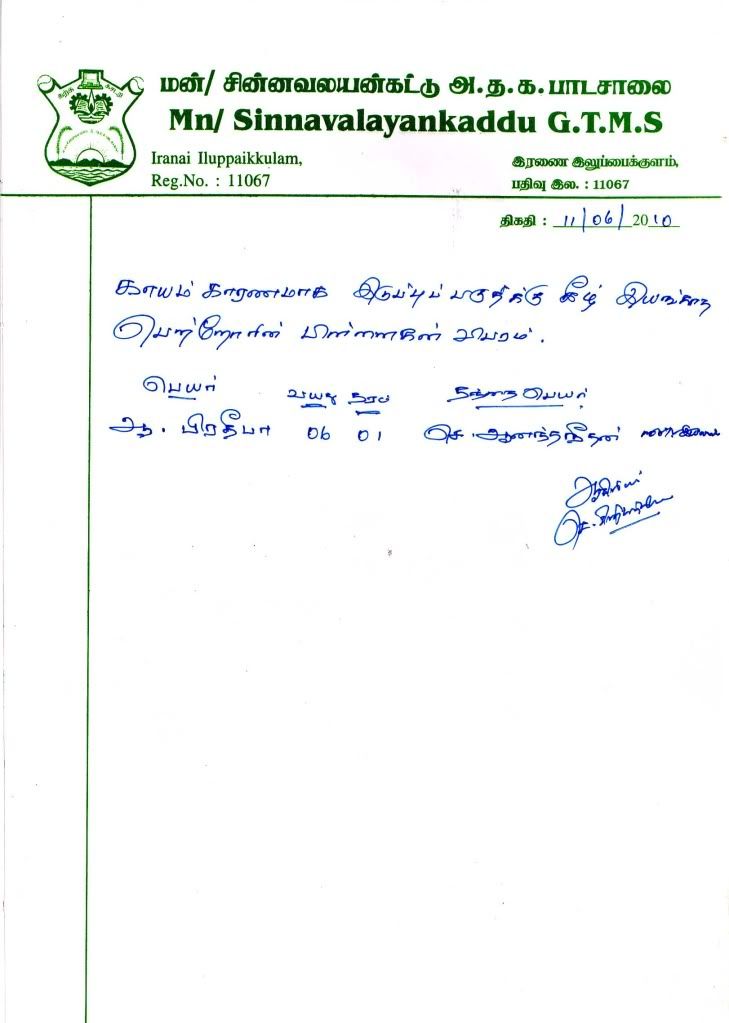 மன்/ சின்னவலயன்கட்டு அ.த.க.பாடசாலை
Mn/ Sinnavalayankaddu G.T.M.S
Iranai Iluppaikkulam,
இரணை இலுப்பைக்குளம்,
Reg.No. : 11067
பதிவு இல. : 11067
திகதி : 11/06/2010
காயம் காரணமாக இடுப்புப் பகுதிக்கு கீழ் இயங்காத
பெற்றோரின் பிள்ளைகள் விபரம்.
பெயர் வயது தரம் தந்தை பெயர்
ஆ. பிரதீபா 06 01 செ. ஆனந்தநீதன்